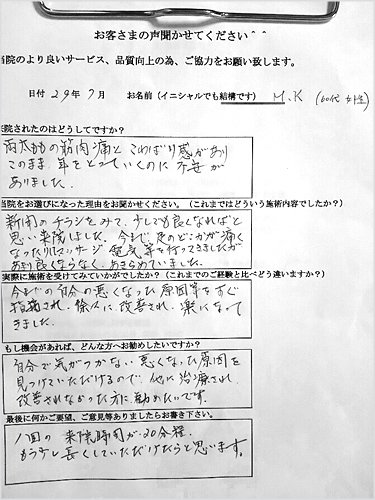 お客さまの声聞かせてください^^
当院のより良いサービス、品質向上の為、ご協力をお願い致します。
日付 29年7月 お名前(イニシャルでも結構です) M.K (60代 女性)
来院されたのはどうしてですか?
両太ももの筋肉痛と こわばり感があり
このまま 年をとっていくのに 不安が
ありました。
当院をお選びになった理由をお聞かせください。(これまではどういう施術内容でしたか?)
新聞のチラシをみて、少しでも良くなればと
思い来院しました。今まで 足のどこかが痛く
なったりしてマッサージ 電気等を行ってきましたが
あまり良くならなく、あきらめていました。
実際に施術を受けてみていかがでしたか?(これまでのご経験と比べどう違いますか?)
今までの自分の悪くなった原因等をすぐ
指摘され、徐々に 改善され、楽になって
きました。
もし機会があれば、どんな方へお勧めしたいですか?
自分で気がつかない 悪くなった原因を
見つけていただけるので、他に治療され
改善されなかった方に 勧めたいです。
最後に何かご要望、ご意見等ありましたらお書き下さい。
1回の 来院時間が 20分程、
もう少し 長くしていただけたらと思います。